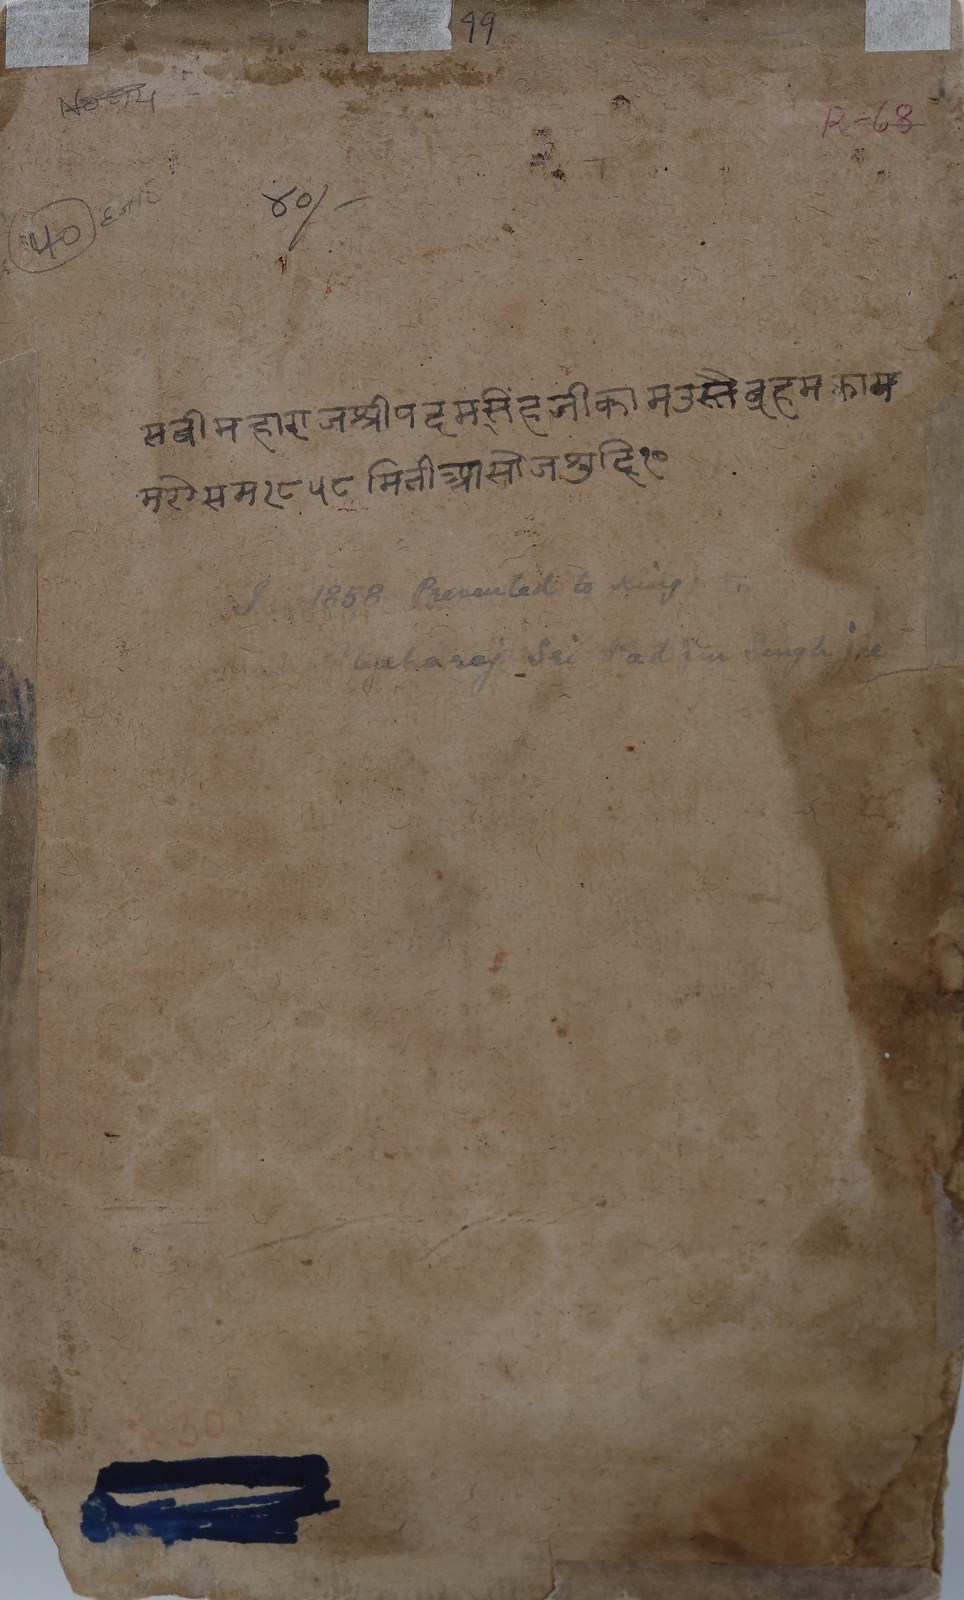 99
R-68
40
४०/-
सबीमहाराजश्रीपदमसिंहजीकामउस्तै
समत१८५८ मितीआसोजशुदि१०
1858 Presented to king
Maharaj Sri Padam Singh jee
30